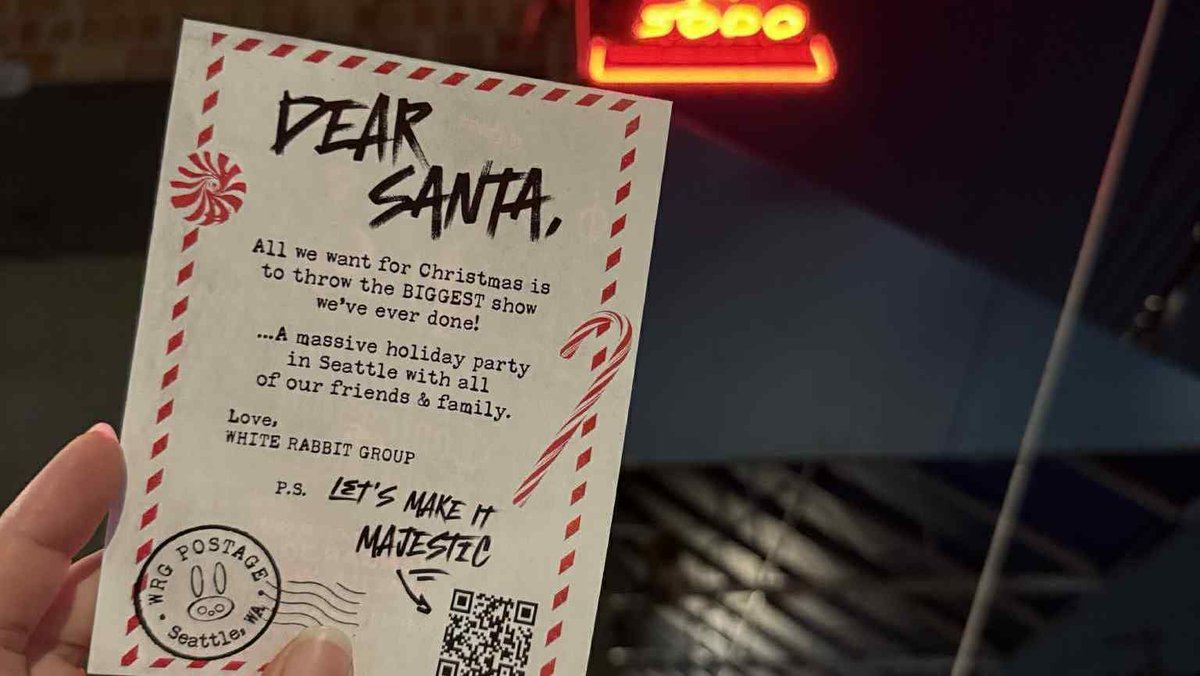 SODO
DEAR
SANTA,
All we want for Christmas is
to throw the BIGGEST show
we've ever done!
...A massive holiday party
in Seattle with all
of our friends & family.
Love,
WHITE RABBIT GROUP
P.S. LET'S MAKE IT
MAJESTIC
• WRG POSTAGE •
Seattle, WA